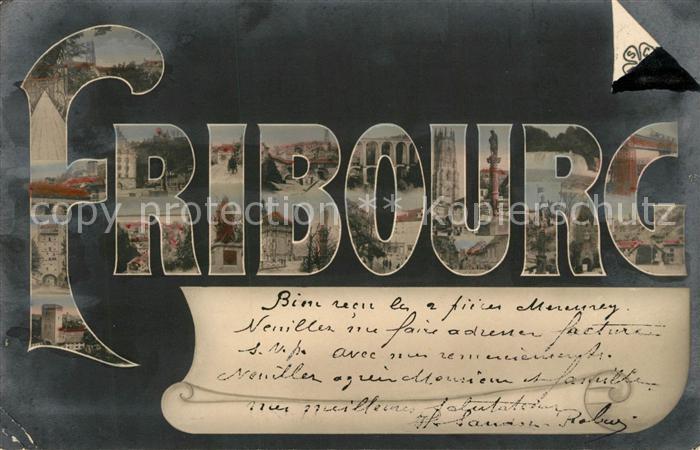 FRIBOURG
copy protection · kopierschutz
Bien reçu les 2 pièces Mercurey.
Veuillez me faire adresser facture
s.v.p. avec mes remerciements.
Veuillez agréer Monsieur et famille
mes meilleures salutations